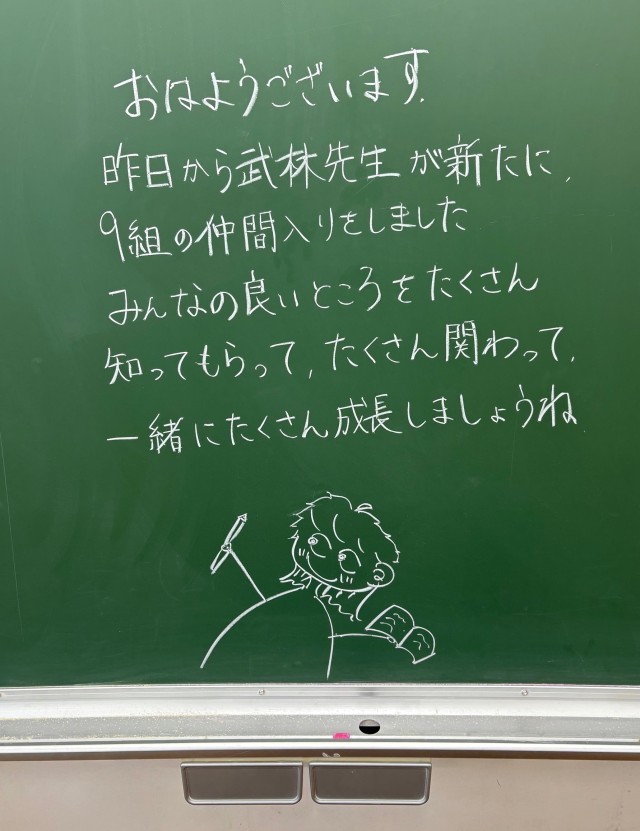 おはようございます.
昨日から武林先生が新たに,
9組の仲間入りをしました
みんなの良いところをたくさん
知ってもらって,たくさん関わって,
一緒にたくさん成長しましょうね